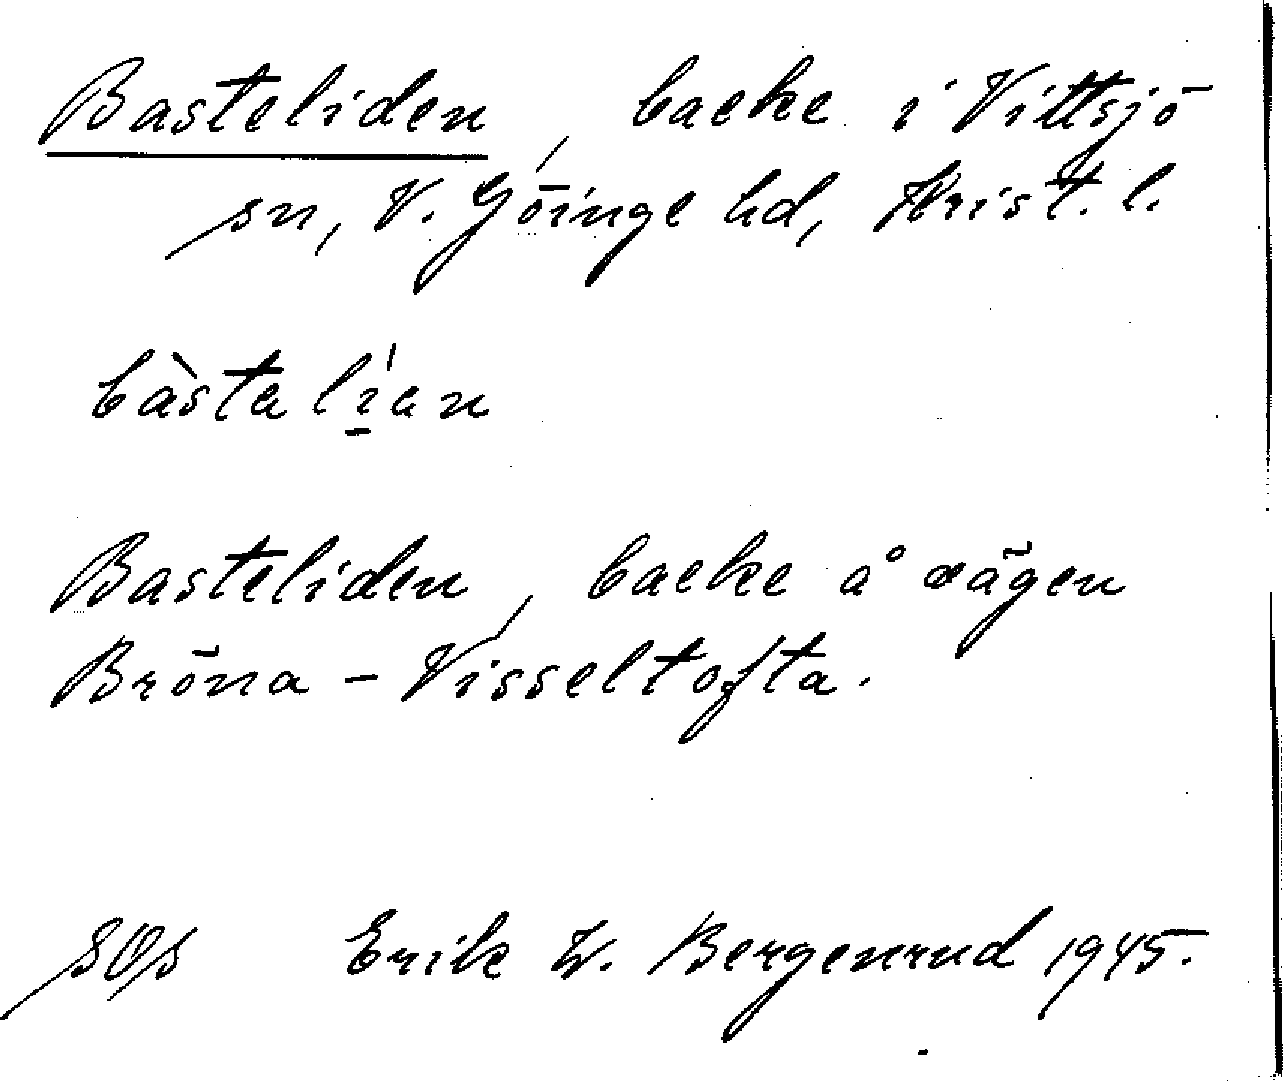 Basteliden, backe i Vittsjö
sn, V. Göinge hd, Krist. l.
bàsta lían
Basteliden, backe å vägen
Bröna - Visseltofta.
SOs Erik W. Bergenrud 1945.